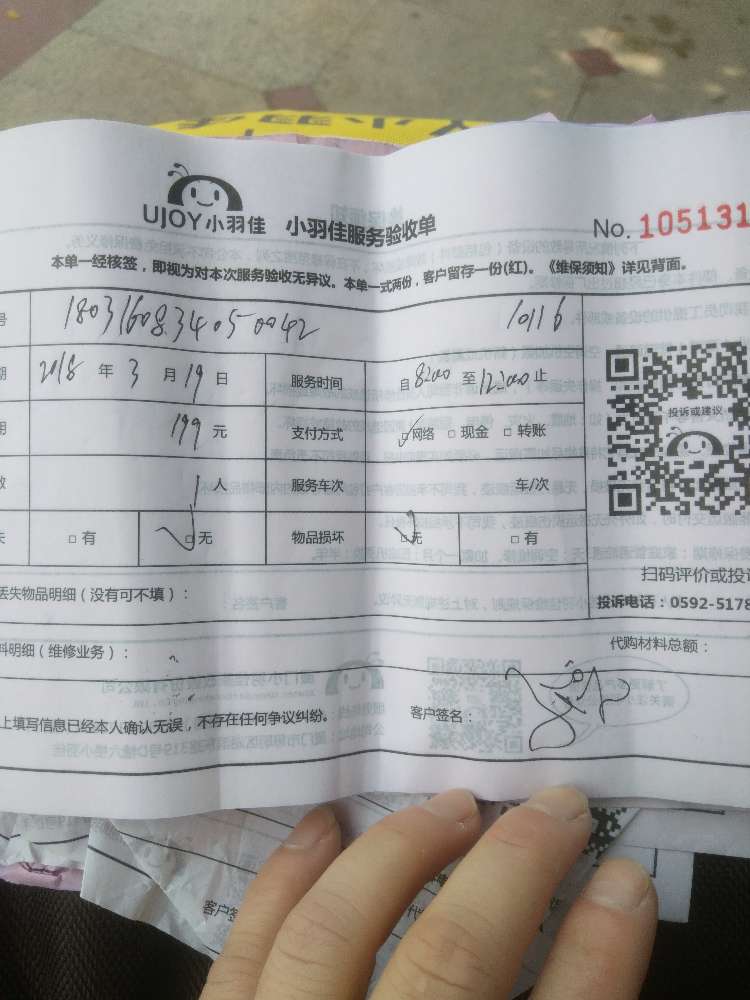 UJOY小羽佳 小羽佳服务验收单
No. 105131
本单一经核签，即视为对本次服务验收无异议。本单一式两份，客户留存一份(红)。《维保须知》详见背面。
号 1803160834050042 10116
期 2018 年 3 月 19 日 服务时间 自 8:00 至 12:00 止
用 199 元 支付方式 □网络 □现金 □转账
投诉或建议
数 1 人 服务车次 车/次
失 □有 □无 物品损坏 □无 □有
扫码评价或投诉
丢失物品明细（没有可不填）：
投诉电话：0592-5178
料明细（维修业务）：
代购材料总额：
上填写信息已经本人确认无误，不存在任何争议纠纷。
客户签名：
客户签